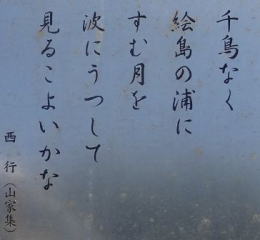 千鳥なく
絵島の浦に
すむ月を
波にうつして
見るこよいかな
西行(山家集)